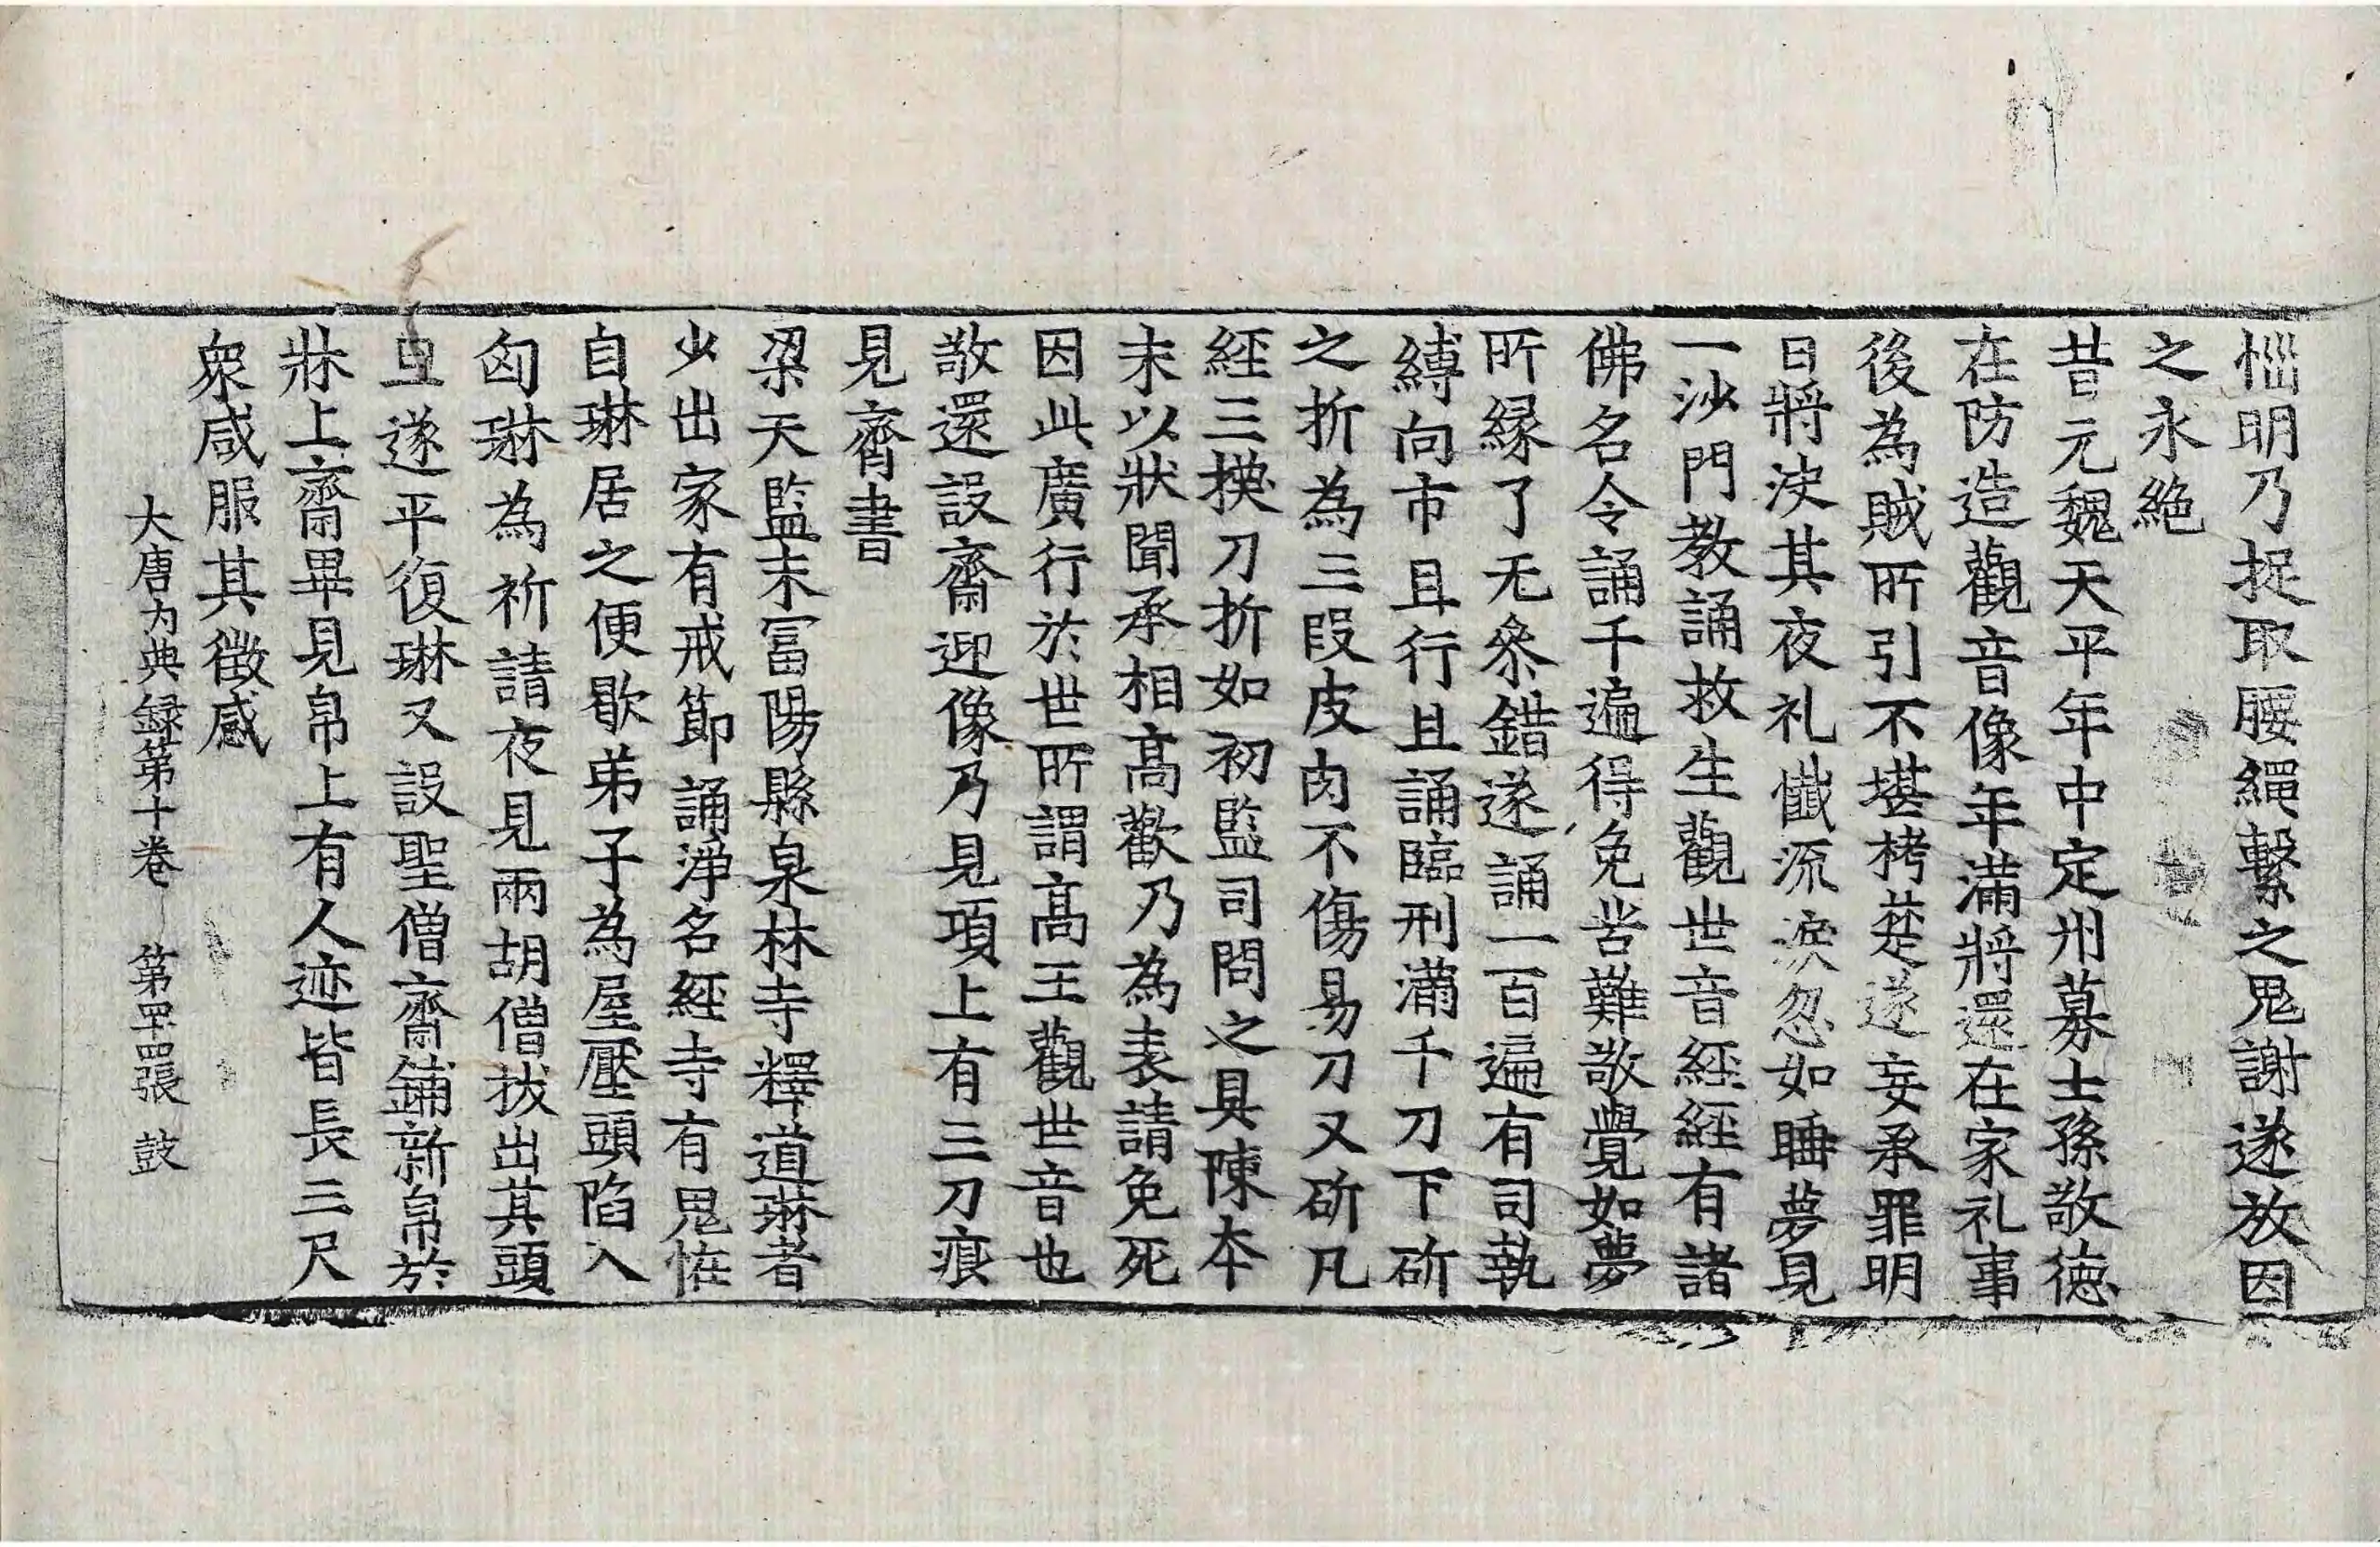 惱明乃捉取腰繩繫之鬼謝遂放因
之永絶
昔元魏天平年中定州募士孫敬德
在防造觀音像年滿將還在家礼事
後為賊所引不堪栲楚遂妄承罪明
日將決其夜礼懺流淚忽如睡夢見
一沙門教誦救生觀世音經經有諸
佛名令誦千遍得免苦難敬覺如夢
所縁了无叅錯遂誦一百遍有司執
縛向市且行且誦臨刑滿千刀下斫
之折為三段皮肉不傷易刀又斫凡
經三換刀折如初監司問之具陳本
末以狀聞承相高歡乃為表請免死
因此廣行於世所謂高王觀世音也
敬還設齋迎像乃見項上有三刀痕
見齊書
梁天監末冨陽縣泉林寺釋道琳者
少出家有戒節誦淨名經寺有鬼恠
自琳居之便歇弟子為屋壓頭陷入
匈琳為祈請夜見兩胡僧拔出其頭
旦遂平復琳又設聖僧齋鋪新帛於
牀上齋畢見帛上有人迹皆長三尺
衆咸服其徵感
大唐內典録第十卷 第四十四張 鼓